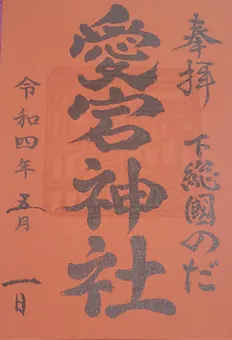 奉拝
下総國のだ
愛宕神社
令和四年五月一日